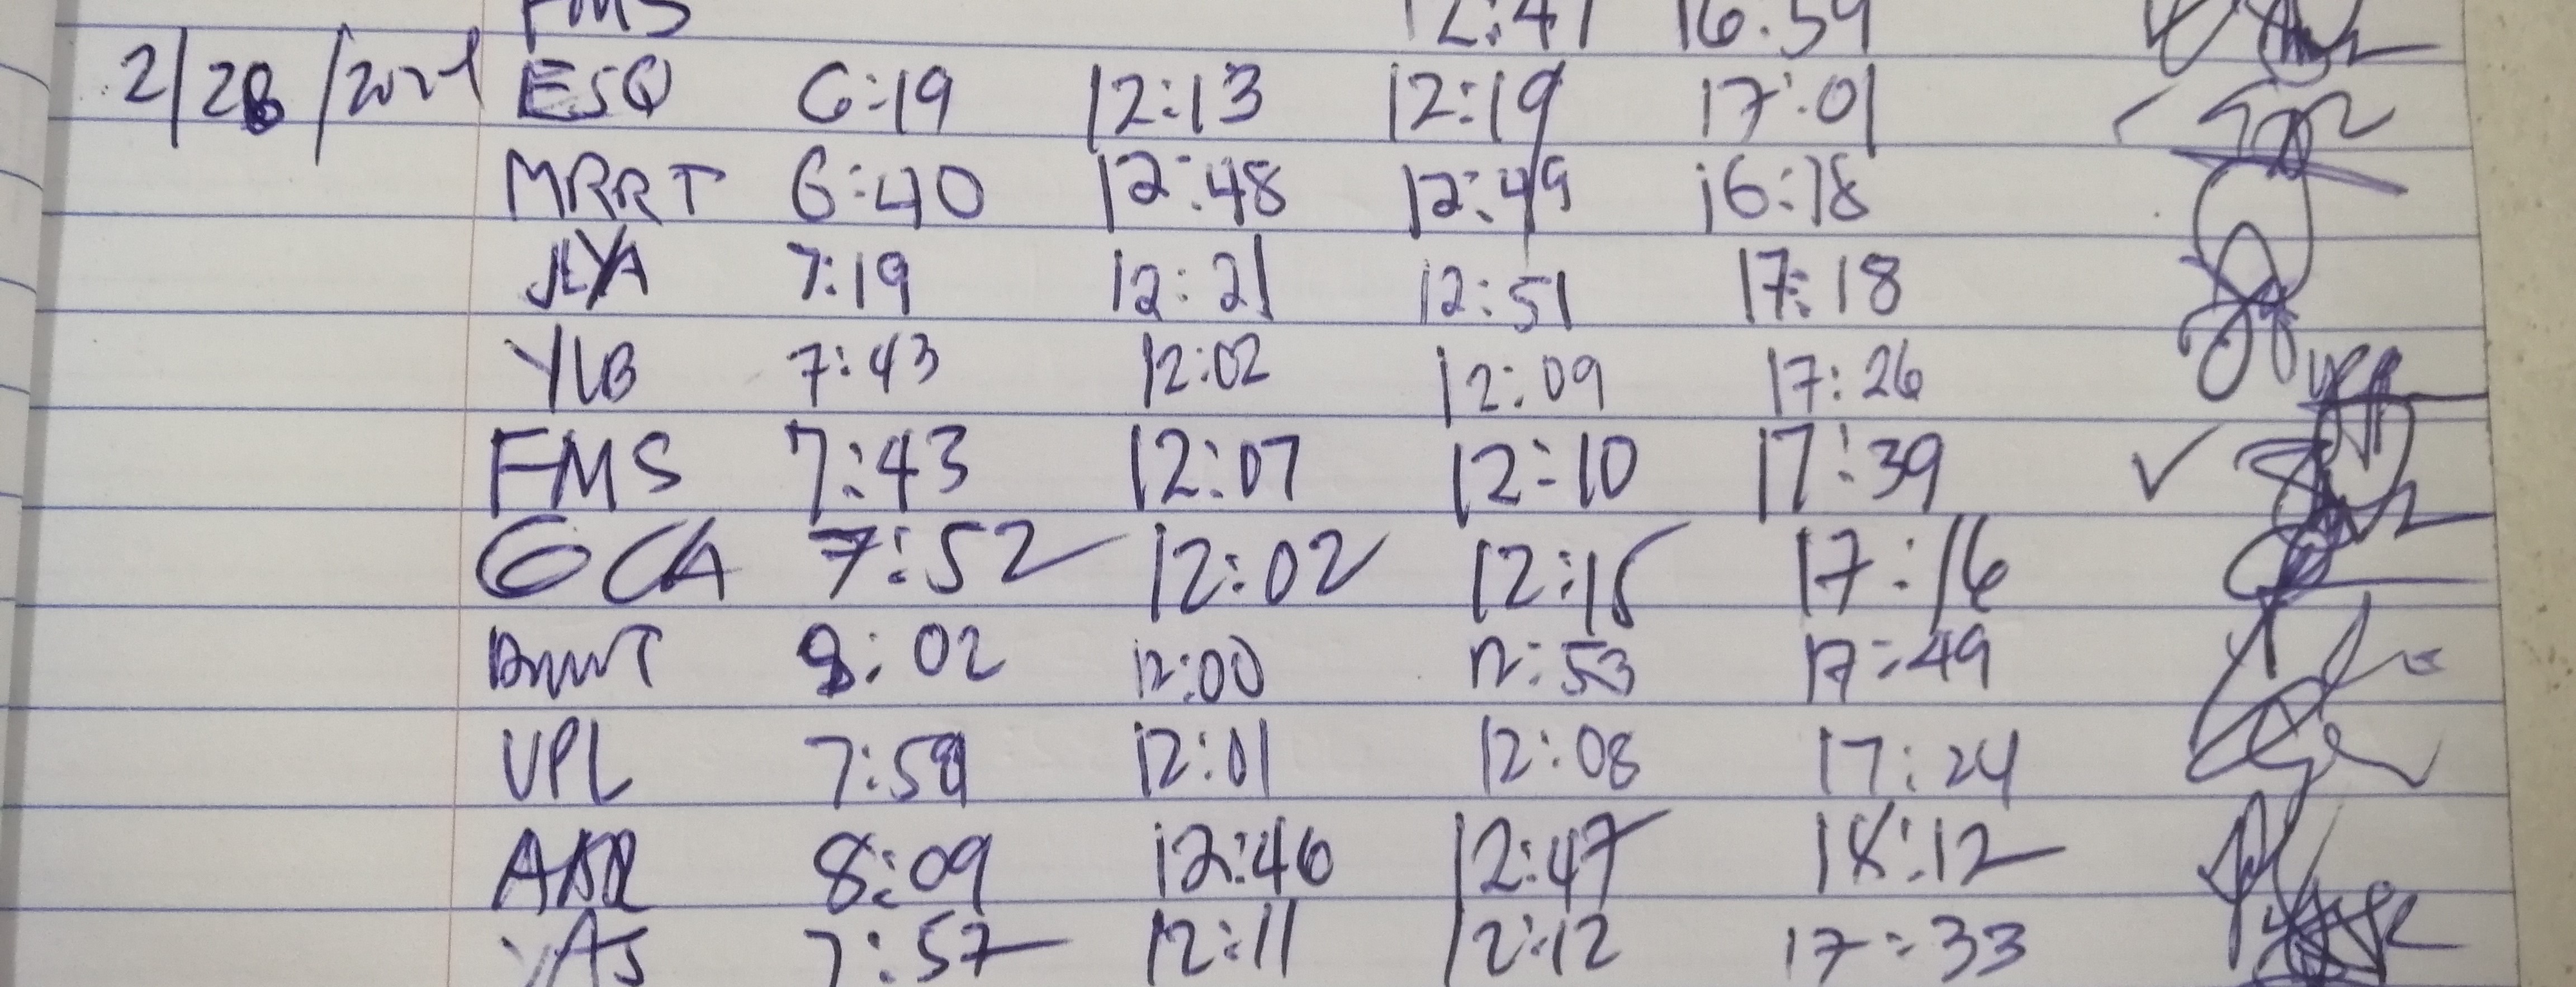 FMS 12:47 16:59
2/28/2021 ESQ 6:19 12:13 12:19 17:01
MRRT 6:40 12:48 12:49 16:18
JLYA 7:19 12:21 12:51 17:18
YLB 7:43 12:02 12:09 17:26
FMS 7:43 12:07 12:10 17:39
GCA 7:52 12:02 12:15 17:16
8:02 12:00 12:53 17:49
VPL 7:59 12:01 12:08 17:24
8:09 12:46 12:47 18:12
YAJ 7:57 12:11 12:12 17:33